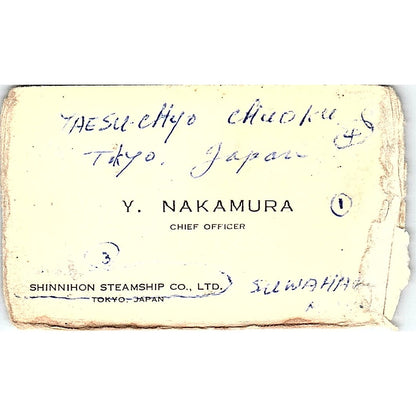 YAESU-CHYO CHUOKU 4
Tokyo, Japan
Y. NAKAMURA 1
CHIEF OFFICER
3
SHINNIHON STEAMSHIP CO., LTD. SUWAHAR
TOKYO, JAPAN